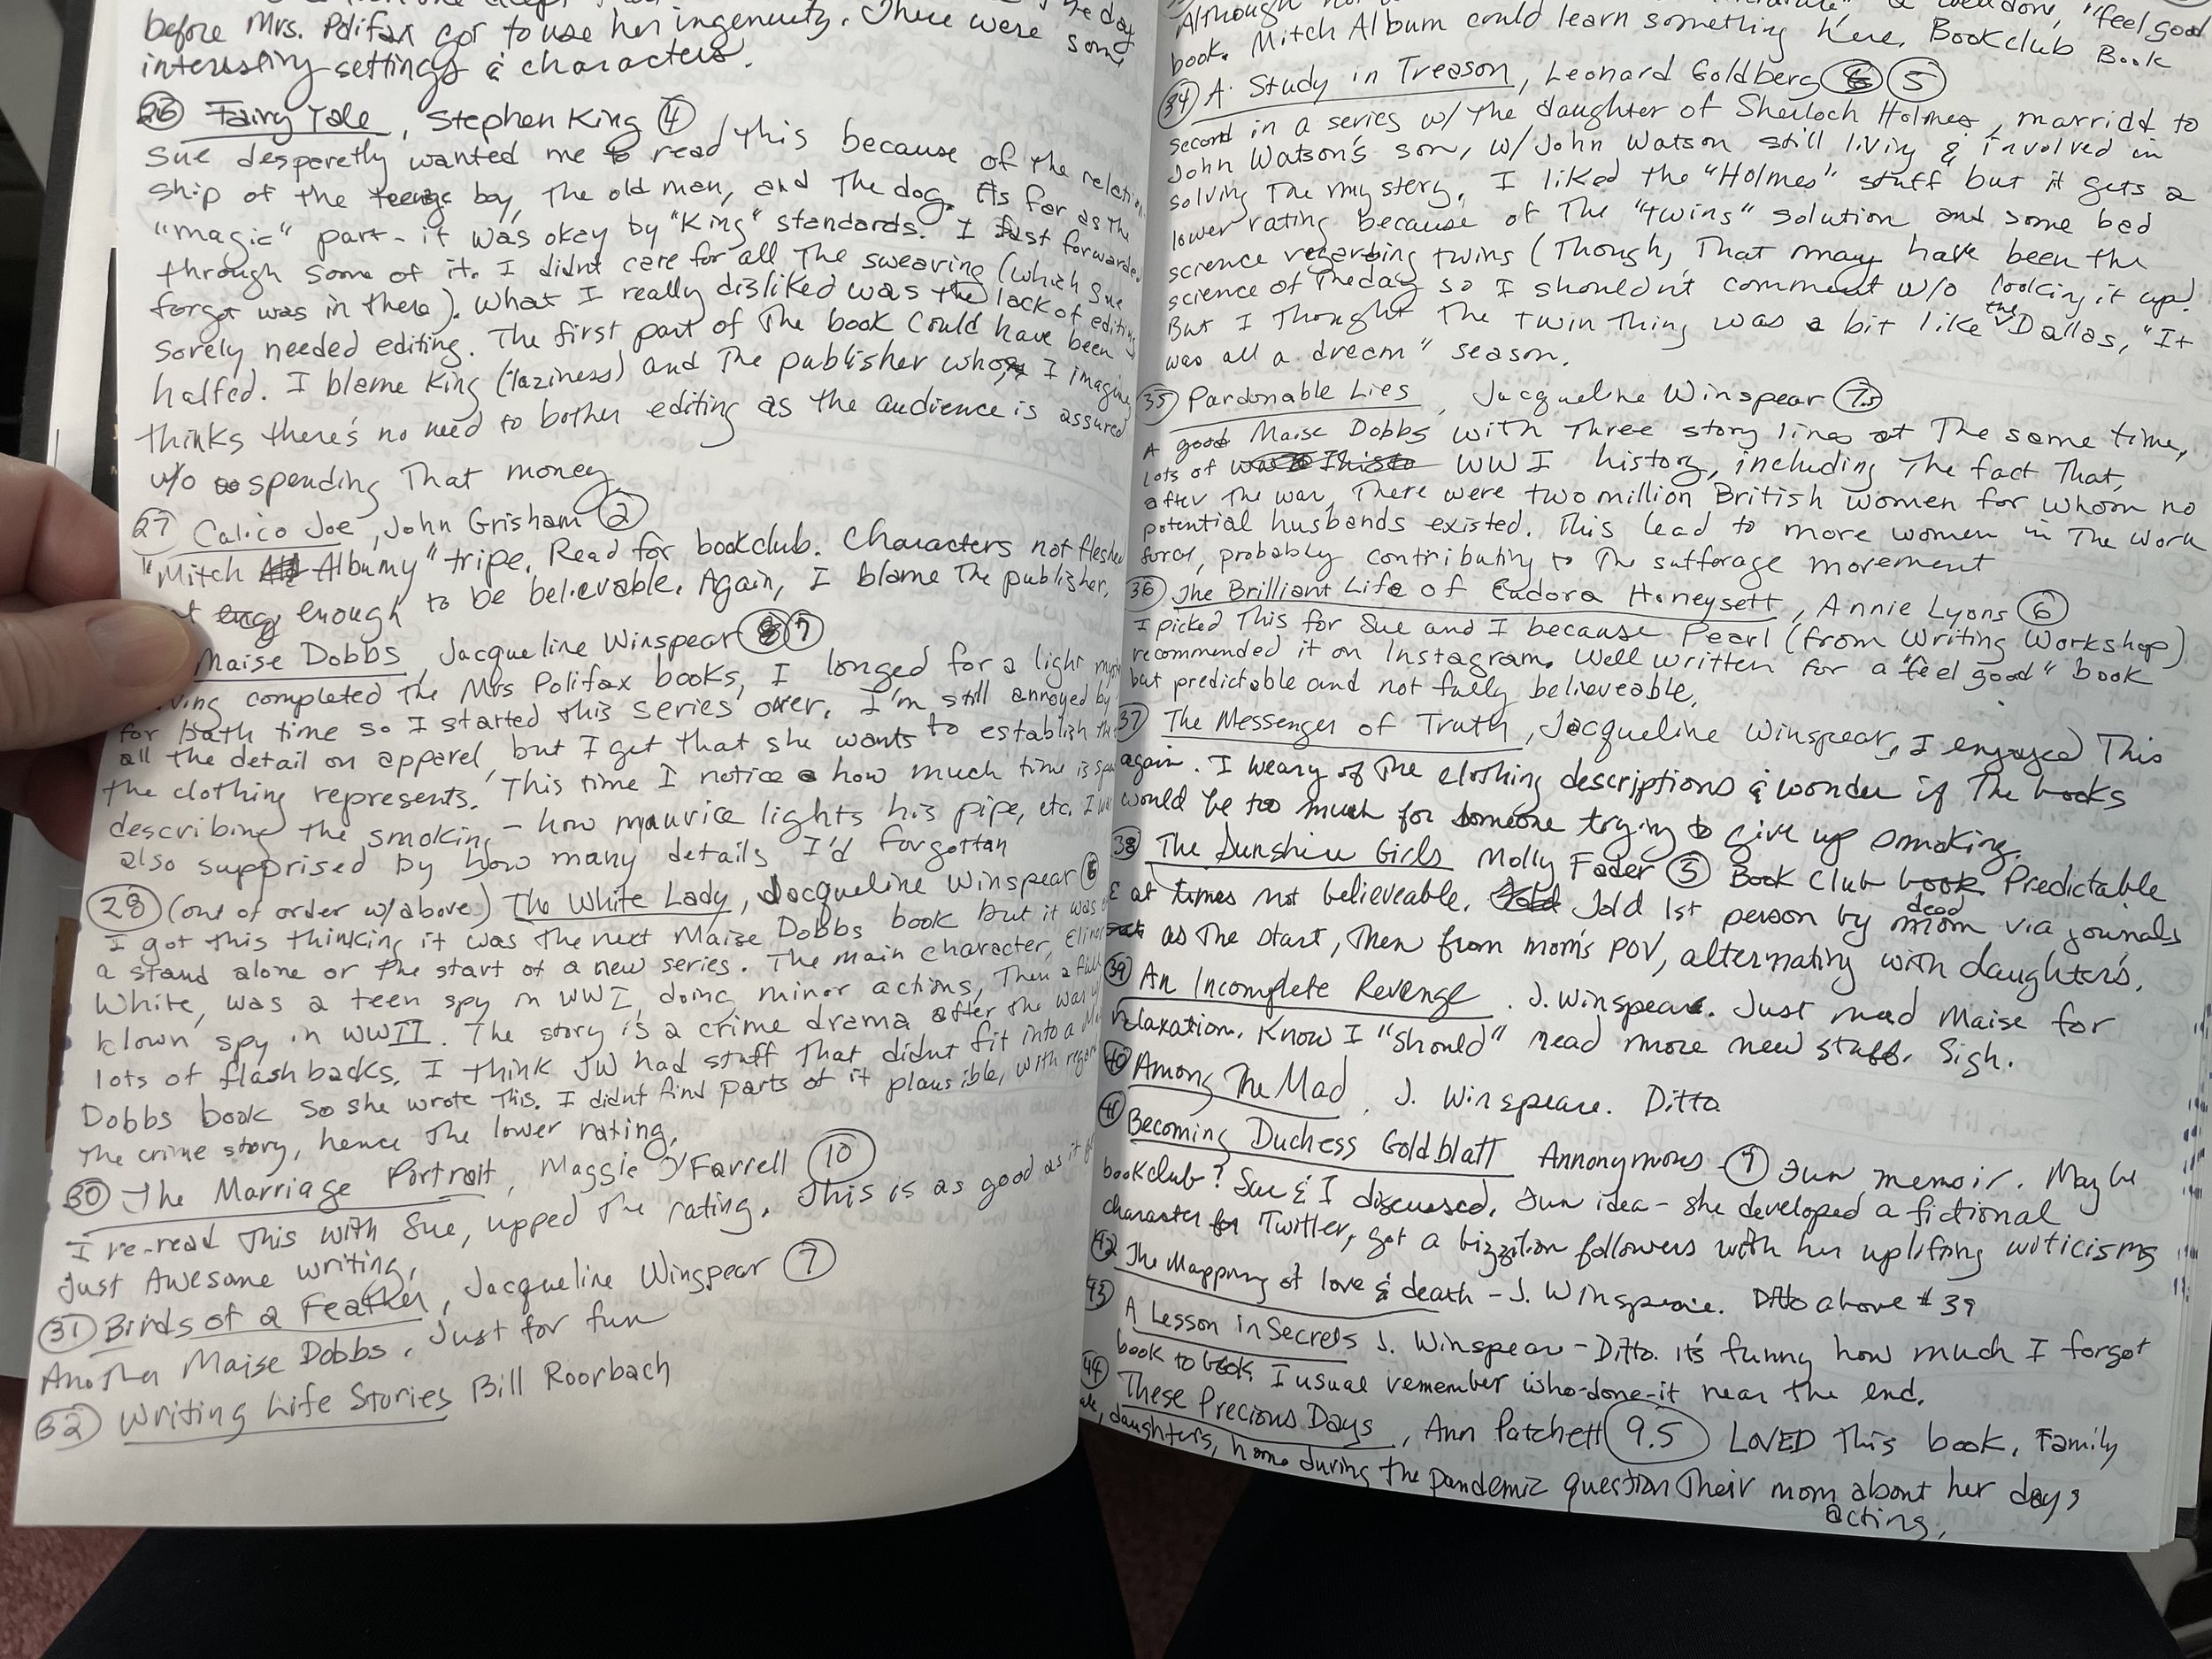 before Mrs. Polifax got to use her ingenuity. There were some
interesting settings & characters.
26 Fairy Tale, Stephen King 4
Sue desperetly wanted me to read this because of the relation
ship of the teenage boy, the old man, and the dog. As far as the
"magic" part - it was okay by "King" standards. I fast forwarded
through some of it. I didnt care for all the swearing (which Sue
forgot was in there). What I really disliked was the lack of editing
Sorely needed editing. The first part of the book could have been
halfed. I blame King (laziness) and the publisher who I imagine
thinks there's no need to bother editing as the audience is assured
w/o spending that money.
27 Calico Joe, John Grisham 2
"Mitch Albumy" tripe. Read for bookclub. Characters not fleshed
enough to be believable. Again, I blame the publisher,
Maise Dobbs, Jacqueline Winspear 7
completed the Mrs Polifax books, I longed for a light
for bath time so I started this series over. I'm still annoyed by
all the detail on apparel, but I get that she wants to establish
the clothing represents. This time I notice how much time is
describing the smoking - how maurice lights his pipe, etc. I
also supprised by how many details I'd forgottan
28 (out of order w/above) The White Lady, Jacqueline Winspear
I got this thinking it was the next Maise Dobbs book but it was
a stand alone or the start of a new series. The main character, Elinor
White, was a teen spy in WWI, doing minor actions, then a full
blown spy in WWII. The story is a crime drama after the war
lots of flashbacks. I think JW had stuff that didnt fit into a
Dobbs book so she wrote this. I didnt find parts of it plausible, with
the crime story, hence the lower rating.
30 The Marriage Portrait, Maggie O'Farrell 10
I re-read this with Sue, upped the rating. This is as good as it
Just Awesome writing.
31 Birds of a Feather, Jacqueline Winspear 7
Another Maise Dobbs. Just for fun
32 Writing Life Stories Bill Roorbach
Although well done, "feel good
book. Mitch Album could learn something here. Bookclub Book
34 A Study in Treason, Leonard Goldberg 5
second in a series w/ the daughter of Sherloch Holmes, marridd to
John Watson's son, w/John Watson still living & involved in
solving the mystery. I liked the "Holmes" stuff but it gets a
lower rating because of the "twins" solution and some bad
science regarding twins (Though, that may have been the
science of the day so I shouldn't comment w/o looking it up!
But I thought the twin thing was a bit like the Dallas, "It
was all a dream" season.
35 Pardonable Lies, Jacqueline Winspear 7.5
A good Maise Dobbs with three story lines at the same time,
lots of WWI history, including the fact that,
after the war, there were two million British women for whom no
potential husbands existed. This lead to more women in the work
force, probably contributing to the sufferage movement
36 The Brilliant Life of Eudora Honeysett, Annie Lyons 6
I picked this for Sue and I because Pearl (from Writing Workshop)
recommended it on Instagram. Well written for a "feel good" book
but predictable and not fully believeable.
37 The Messenger of Truth, Jacqueline Winspear, I enjoyed this
again. I weary of the clothing descriptions & wonder if the books
would be too much for someone trying to give up smoking.
38 The Sunshine Girls Molly Fader 5 Book Club book. Predictable
& at times not believeable. Told 1st person by dead mom via journals
as the start, then from mom's POV, alternating with daughter's.
39 An Incomplete Revenge. J. Winspear. Just need Maise for
relaxation. Know I "should" read more new stuff. Sigh.
40 Among the Mad, J. Winspeare. Ditto
41 Becoming Duchess Goldblatt Annonymous - 9 Fun memoir. Maybe
bookclub? Sue & I discussed. Fun idea - she developed a fictional
character for Twitter, got a bizzilion followers with her uplifting witicisms
42 The Mapping of love & death - J. Winspeare. Ditto above #39
43 A Lesson in Secrets J. Winspear - Ditto. it's funny how much I forgot
book to book. I usual remember who-done-it near the end.
44 These Precious Days, Ann Patchett 9.5 LOVED this book. Family
daughters, home during the pandemic question their mom about her days
acting.